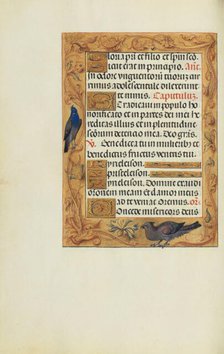 Gloria patri et filio et spiritui sc
sicut erat in principio. Ant.
In odore unguentorum tuorum
adolescentule dilexerunt
Capitulum
Et radicaui in populo ho
norificato et in partes dei mei he
reditas illius et in plenitudine sanc
torum detentio mea. Deo gratias.
V. Benedicta tu in mulieribus et
benedictus fructus ventris tui
kyrieleison.
christeleison.
kyrieleison. Domine exaudi
orationem meam et clamor meus
ad te veniat Oremus. or
Concede misericors deus